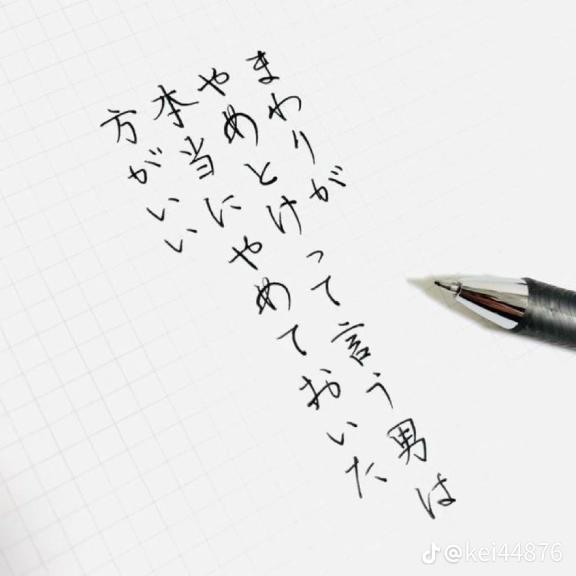 まわりが
やめとけって言う男は
本当にやめておいた
方がいい
@kei44876